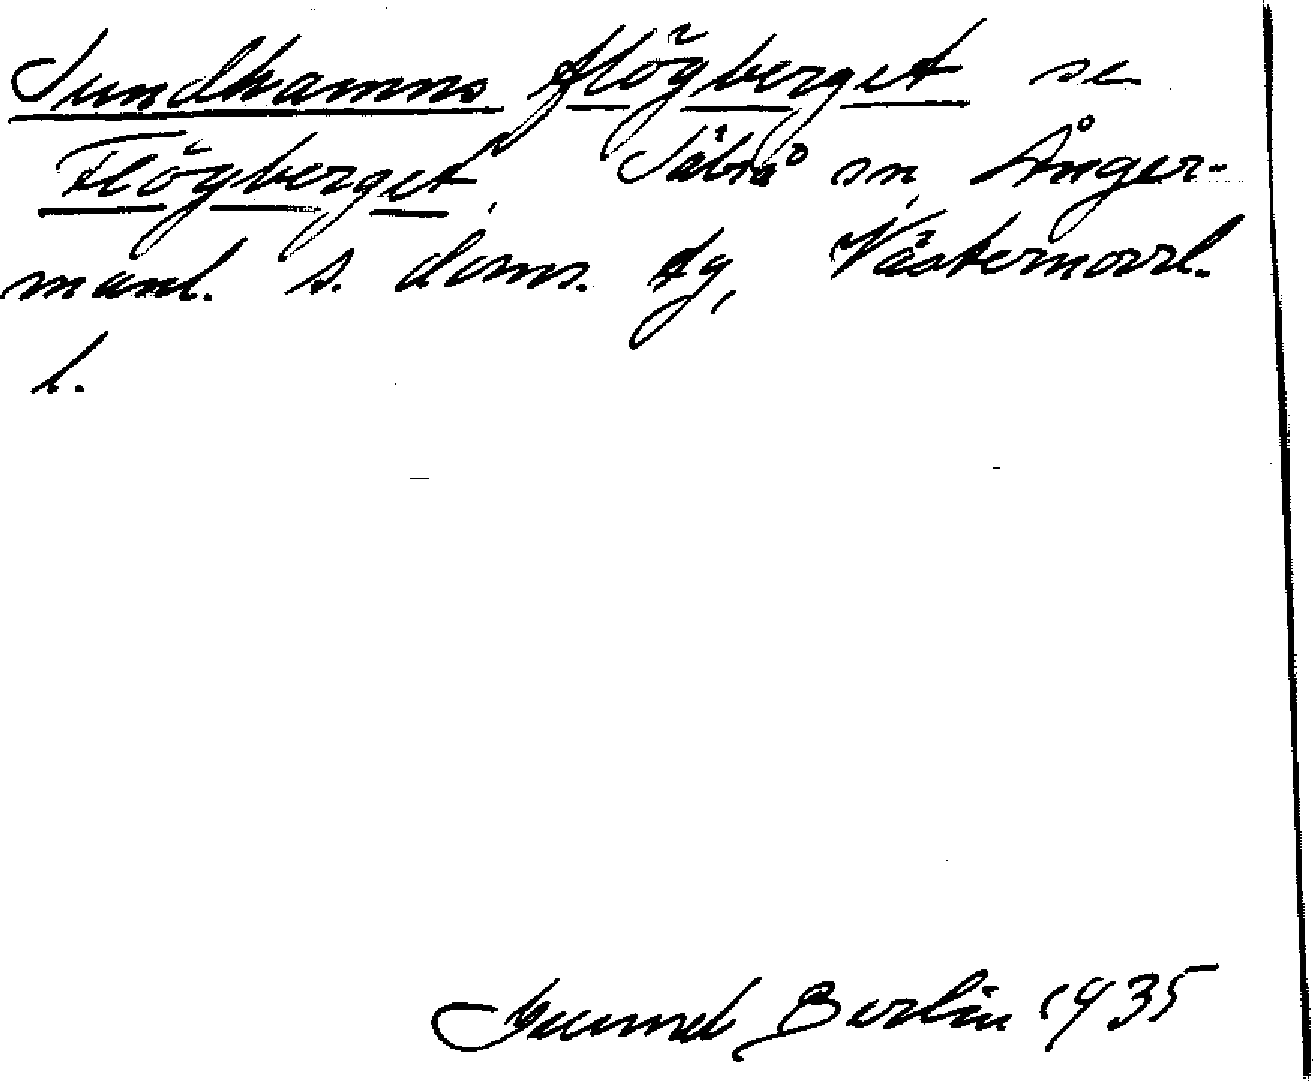 Sundhamns flögberget se
Flögberget, Säbrå sn, Ånger-
manl. s. doms. tg, Västernorrl.
l.
Gunnel Berlin 1935